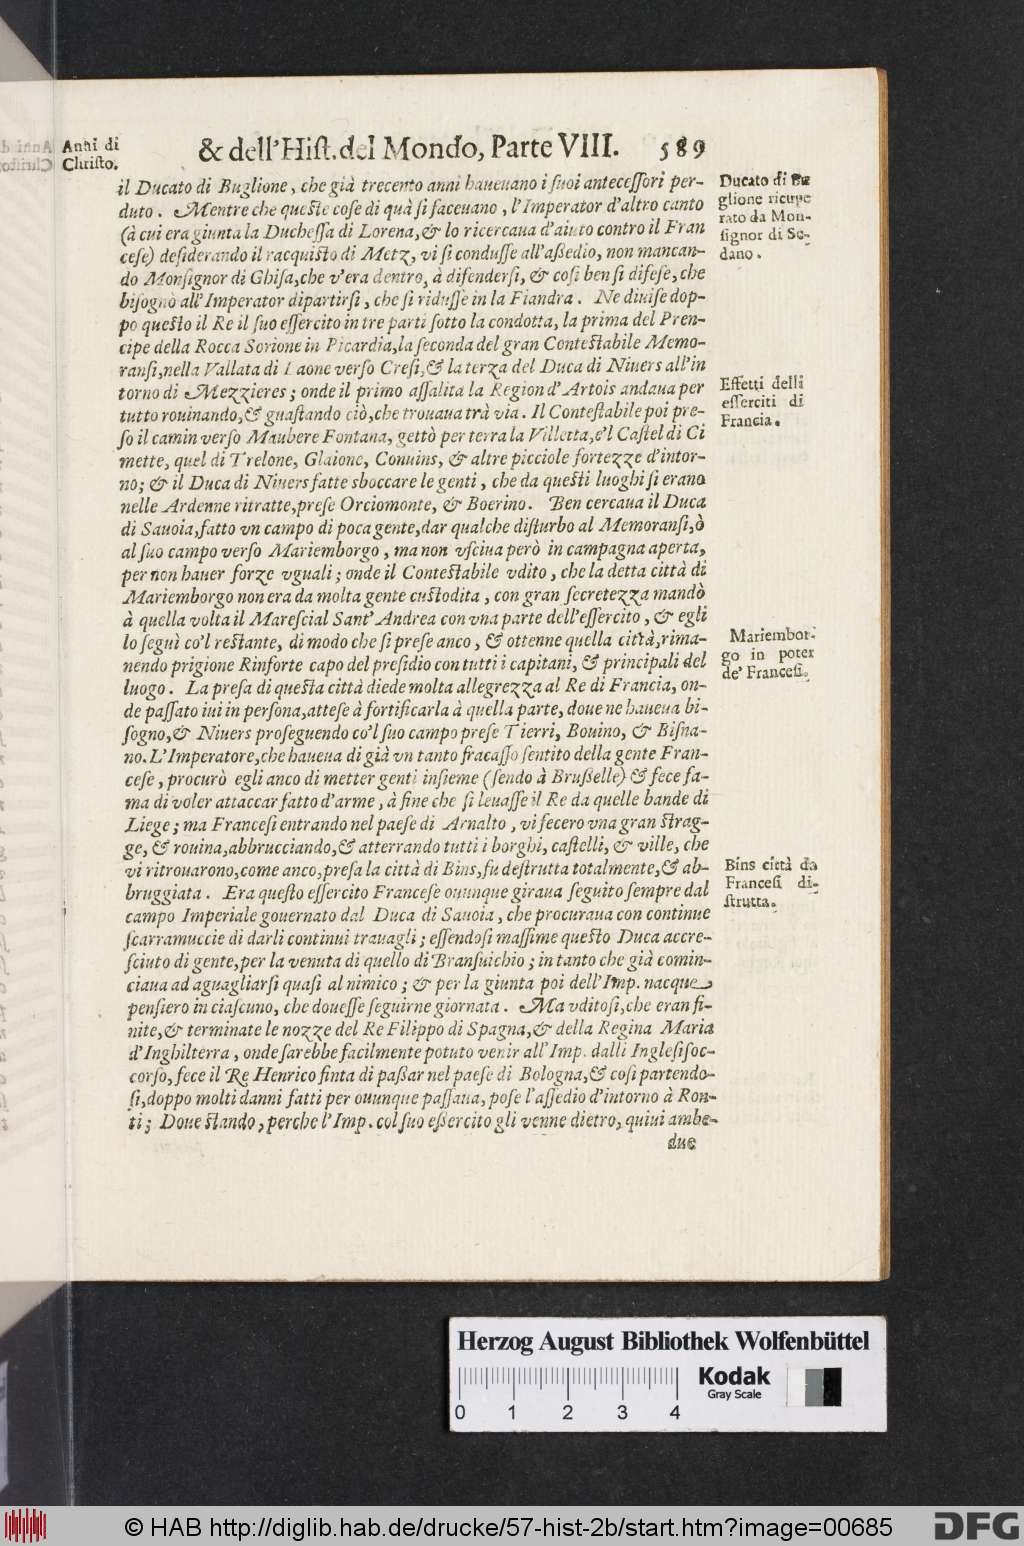 Anni di
Christo.
& dell'Hiſt. del Mondo, Parte VIII. 589
il Ducato di Buglione, che già trecento anni haueuano i ſuoi anteceſſori per-
duto. Mentre che queſte coſe di quà ſi faceuano, l'Imperator d'altro canto
(à cui era giunta la Ducheſſa di Lorena, & lo ricercaua d'aiuto contro il Fran
ceſe) deſiderando il racquiſto di Metz, vi ſi conduſſe all'aßedio, non mancan-
do Monſignor di Ghiſa, che v'era dentro, à difenderſi, & coſi ben ſi difeſe, che
biſognò all'Imperator dipartirſi, che ſi riduſſe in la Fiandra. Ne diuiſe dop-
po queſto il Re il ſuo eſſercito in tre parti ſotto la condotta, la prima del Pren-
cipe della Rocca Sorione in Picardia, la ſeconda del gran Conteſtabile Memo-
ranſi, nella Vallata di Laone verſo Creſi, & la terza del Duca di Niuers all'in
torno di Mezzieres; onde il primo aſſalita la Region d'Artois andaua per
tutto rouinando, & guaſtando ciò, che trouaua trà via. Il Conteſtabile poi pre-
ſo il camin verſo Maubere Fontana, gettò per terra la Villetta, e'l Caſtel di Ci
mette, quel di Trelone, Glaione, Conuins, & altre picciole fortezze d'intor-
no; & il Duca di Niuers fatte sboccare le genti, che da queſti luoghi ſi erano
nelle Ardenne ritratte, preſe Orciomonte, & Boerino. Ben cercaua il Duca
di Sauoia, fatto vn campo di poca gente, dar qualche diſturbo al Memoranſi, ò
al ſuo campo verſo Mariemborgo, ma non vſciua però in campagna aperta,
per non hauer forze vguali; onde il Conteſtabile vdito, che la detta città di
Mariemborgo non era da molta gente cuſtodita, con gran ſecretezza mandò
à quella volta il Mareſcial Sant' Andrea con vna parte dell'eſſercito, & egli
lo ſeguì co'l reſtante, di modo che ſi preſe anco, & ottenne quella città, rima-
nendo prigione Rinforte capo del preſidio con tutti i capitani, & principali del
luogo. La preſa di queſta città diede molta allegrezza al Re di Francia, on-
de paſſato iui in perſona, atteſe à fortificarla à quella parte, doue ne haueua bi-
ſogno, & Niuers proſeguendo co'l ſuo campo preſe Tierri, Bouino, & Biſna-
no. L'Imperatore, che haueua di già vn tanto fracaſſo ſentito della gente Fran-
ceſe, procurò egli anco di metter genti inſieme (ſendo à Brußelle) & fece fa-
ma di voler attaccar fatto d'arme, à fine che ſi leuaſſe il Re da quelle bande di
Liege; ma Franceſi entrando nel paeſe di Arnalto, vi fecero vna gran ſtrag-
ge, & rouina, abbrucciando, & atterrando tutti i borghi, caſtelli, & ville, che
vi ritrouarono, come anco, preſa la città di Bins, fu deſtrutta totalmente, & ab-
bruggiata. Era queſto eſſercito Franceſe ouunque giraua ſeguito ſempre dal
campo Imperiale gouernato dal Duca di Sauoia, che procuraua con continue
ſcarramuccie di darli continui trauagli; eſſendoſi maſſime queſto Duca accre-
ſciuto di gente, per la venuta di quello di Branſuichio; in tanto che già comin-
ciaua ad aguagliarſi quaſi al nimico; & per la giunta poi dell'Imp. nacque
penſiero in ciaſcuno, che doueſſe ſeguirne giornata. Ma vditoſi, che eran fi-
nite, & terminate le nozze del Re Filippo di Spagna, & della Regina Maria
d'Inghilterra, onde ſarebbe facilmente potuto venir all'Imp. dalli Ingleſi ſoc-
corſo, fece il Re Henrico finta di paßar nel paeſe di Bologna, & coſi partendo-
ſi, doppo molti danni fatti per ouunque paſſaua, poſe l'aſſedio d'intorno à Ron-
ti; Doue ſtando, perche l'Imp. col ſuo eßercito gli venne dietro, quiui ambe-
due
Ducato di Bu
glione ricupe
rato da Mon-
ſignor di Se-
dano.
Effetti delli
eſſerciti di
Francia.
Mariembor-
go in poter
de' Franceſi.
Bins città da
Franceſi di-
ſtrutta.
Herzog August Bibliothek Wolfenbüttel
Kodak
Gray Scale
0 1 2 3 4
© HAB http://diglib.hab.de/drucke/57-hist-2b/start.htm?image=00685
DFG